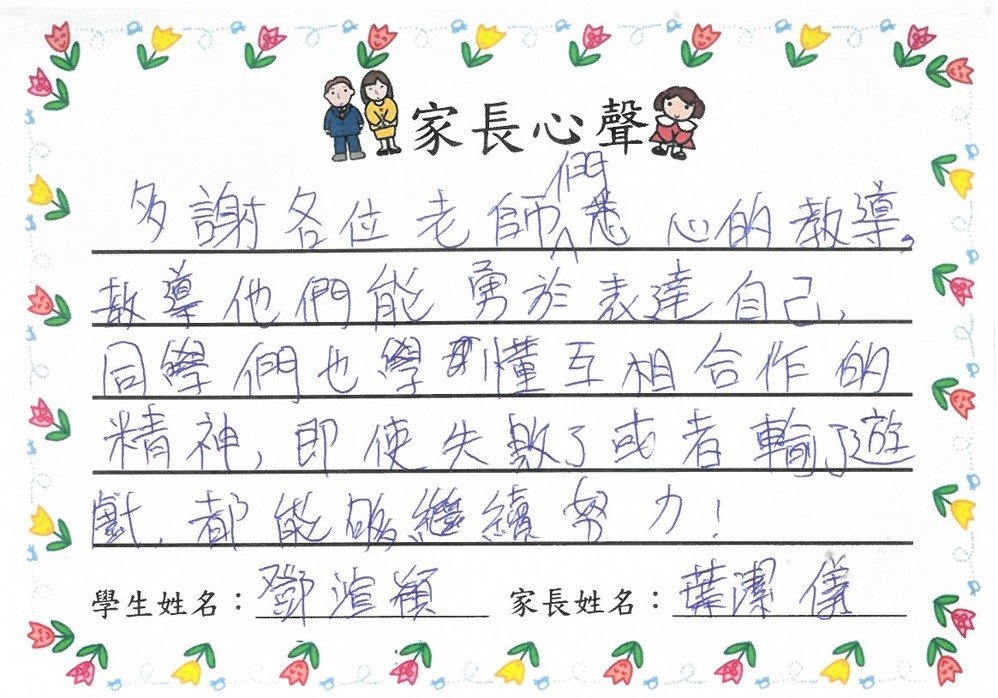 家長心聲
多謝各位老師們悉心的教導,
教導他們能勇於表達自己,
同學們也學到懂互相合作的
精神,即使失敗了或者輸了遊
戲,都能夠繼續努力!
學生姓名:鄧渲穎 家長姓名:葉潔儀